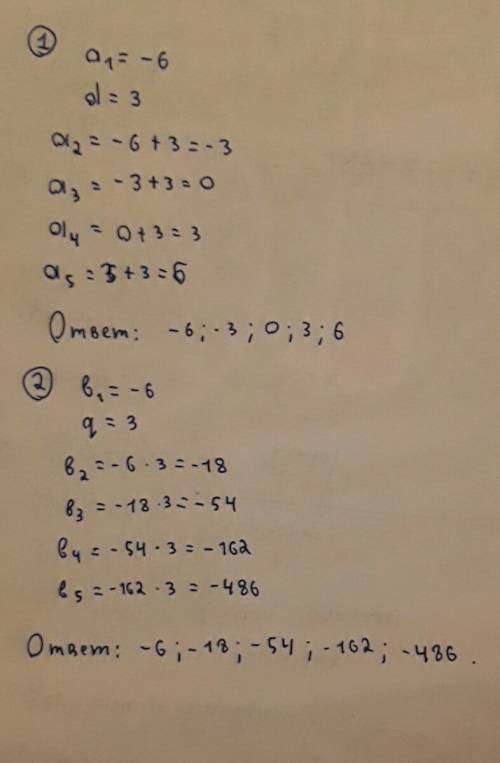 1
a₁ = -6
d = 3
a₂ = -6 + 3 = -3
a₃ = -3 + 3 = 0
a₄ = 0 + 3 = 3
a₅ = 3 + 3 = 6
Ответ: -6 ; -3 ; 0 ; 3 ; 6
2
в₁ = -6
q = 3
в₂ = -6 · 3 = -18
в₃ = -18 · 3 = -54
в₄ = -54 · 3 = -162
в₅ = -162 · 3 = -486
Ответ: -6 ; -18 ; -54 ; -162 ; -486 .